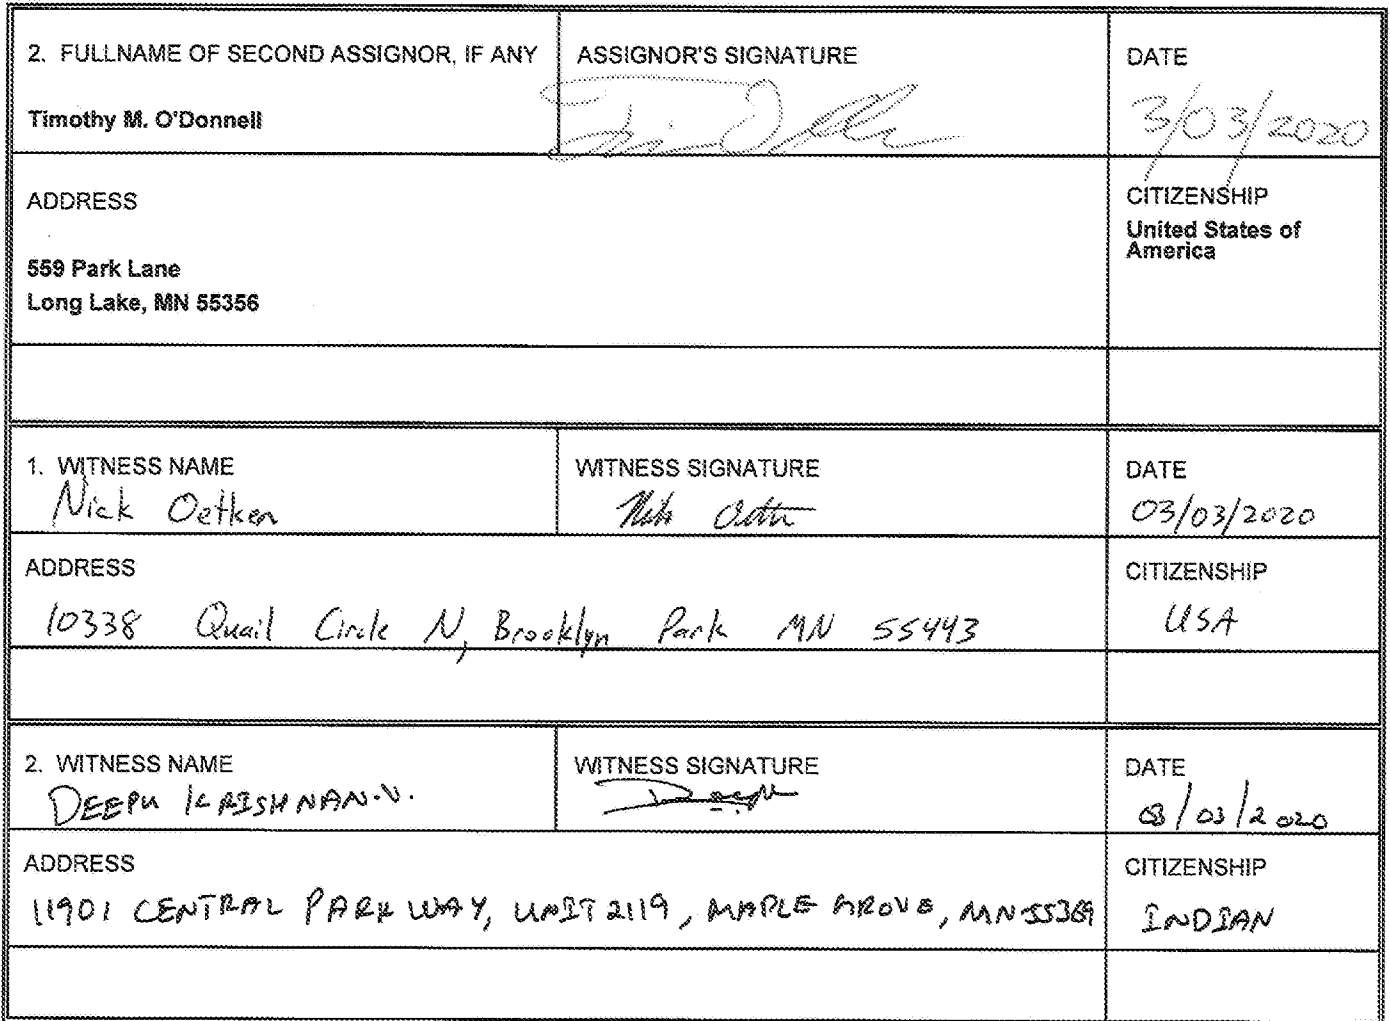 2. FULLNAME OF SECOND ASSIGNOR, IF ANY
Timothy M. O'Donnell
ASSIGNOR'S SIGNATURE
DATE
3/03/2020
ADDRESS
559 Park Lane
Long Lake, MN 55356
CITIZENSHIP
United States of
America
1. WITNESS NAME
Nick Oetken
WITNESS SIGNATURE
DATE
03/03/2020
ADDRESS
10338 Quail Circle N, Brooklyn Park MN 55443
CITIZENSHIP
USA
2. WITNESS NAME
DEEPU KRISHNAN.V.
WITNESS SIGNATURE
DATE
03/03/2020
ADDRESS
11901 CENTRAL PARK WAY, UNIT 2119, MAPLE GROVE, MN 55369
CITIZENSHIP
INDIAN